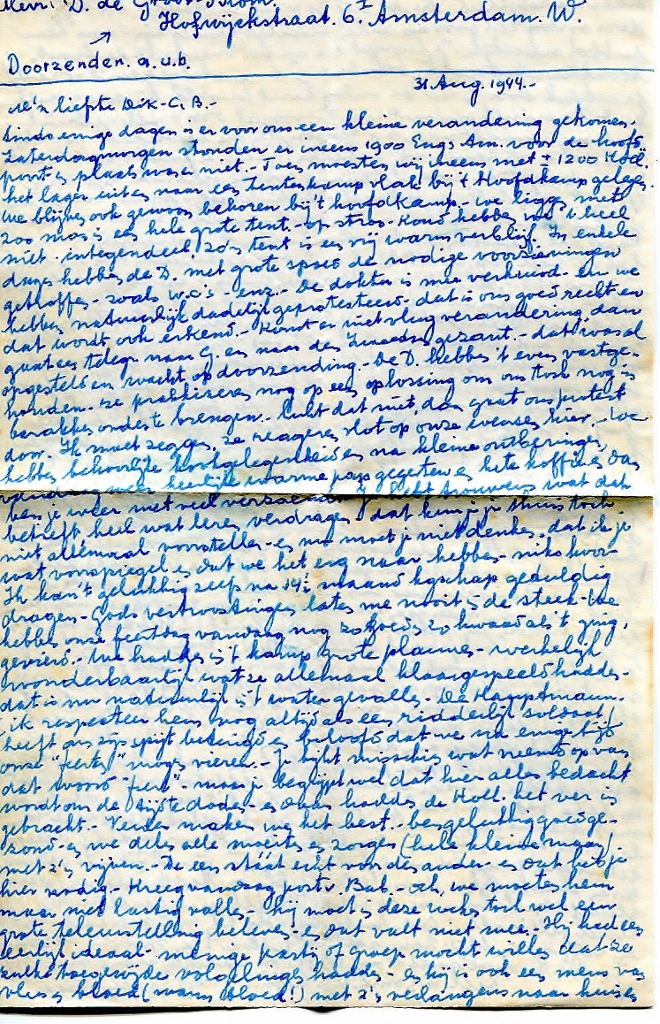 Mevr. D. de Groot-
Hofwijckstraat. 6 I Amsterdam. W.
Doorzenden. a.u.b.
31 Aug. 1944.-
M'n liefste Dik-C.B.-
Sinds enige dagen is er voor ons een kleine verandering gekomen.
Zaterdagmorgen stonden er ineens 1900 Eng. Am. voor de hoofd
poort en plaats was er niet.- Toen moesten wij ineens met ± 1200 Holl.
het lager uit en naar een tentenkamp vlak bij 't Hoofdkamp gelegen.
We blijven ook gewoon behoren bij 't hoofdkamp.- we liggen met
200 man in een hele grote tent.- op stro.- Koud hebben we 't heel
niet - integendeel, zo'n tent is een vrij warm verblijf. In enkele
dagen hebben de D. met grote spoed de nodige voorzieningen
getroffen.- zoals w.c.'s enz.- De dokter is mee verhuisd- en we
hebben natuurlijk dadelijk geprotesteerd- dat is ons goed recht en
dat wordt ook erkend.- Komt er niet vlug verandering, dan
gaat een telegr. naar G. en naar den Zweedsen gezant.- dat was al
opgesteld en wacht op doorzending.- De D. hebben 't even vastge-
houden. ze prakkizeren nog op een oplossing om ons toch nog in
barakken onder te brengen. Lukt dat niet, dan gaat ons protest
door. Ik moet zeggen, ze reageren vlot op onze wensen hier.- We
hebben behoorlijke kookgelegenheid en na kleine ontberingen,
heerlijke warme pap gegeten en hete koffie en dan
ben je weer met veel verzoend. Je hebt trouwens wat dat
betreft heel wat leren verdragen, dat kun je je thuis toch
niet allemaal voorstellen- en nu moet je niet denken, dat ik je
wat voorspiegel en dat we het erg naar hebben- niks hoor-
Ik kan 't gelukkig zelfs na 14½ maand kgschap geduldig
dragen- Gods vertroostingen laten me nooit in de steek- We
hebben onze feestdag vandaag nog zo goed en zo kwaad als 't ging,
gevierd.- We hadden in 't kamp grote plannen- werkelijk
wonderbaarlijk wat ze allemaal klaargespeeld hadden-
dat is nu natuurlijk in 't water gevallen- De Hauptmann.
(ik respecteer hem nog altijd als een ridderlijk soldaat)
heeft ons zijn spijt betuigd en beloofd dat we na enige tijd
onze "feest" mogen vieren.- Je kijkt misschien wat vreemd op van
dat woord "feest"- maar je begrijpt wel dat hier alles bedacht
wordt om de tijd te doden- en daar hadden de Holl. het ver in
gebracht.- Verder maken we het best.- ben gelukkig goed ge-
zond- en we delen alle moeites en zorgen (hele kleine maar)-
met z'n vijven.- De een stáát echt voor den ander- en dat heb je
hier nodig.- Kreeg vandaag post v. Bab.- och, we moeten hem
maar niet lastig vallen- hij moet in deze weken toch wel een
grote teleurstelling beleven- en dat valt niet mee.- Hij had een
eerlijk ideaal- menige partij of groep mocht willen dat ze
zulke toegewijde volgelingen hadden- en hij is ook een mens van
vlees en bloed (warm bloed!) met z'n verlangens naar huis en